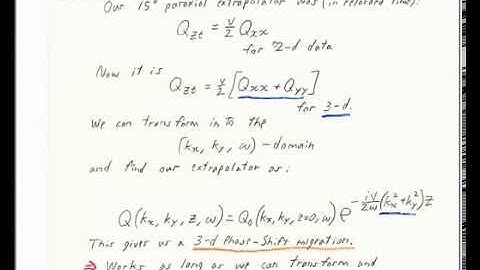 Our 15° paraxial extrapolator was (in retarded time):
Q_zt = v/2 Q_xx
for 2-d data
Now it is
Q_zt = v/2 [Q_xx + Q_yy]
for 3-d.
We can transform into the
(k_x, k_y, ω) - domain
and find our extrapolator as:
Q(k_x, k_y, z, ω) = Q_0(k_x, k_y, z=0, ω) e^{-iv/2ω (k_x^2 + k_y^2) z}
This gives us a 3-d Phase-Shift migration.
⇒ Works as long as we can transform and